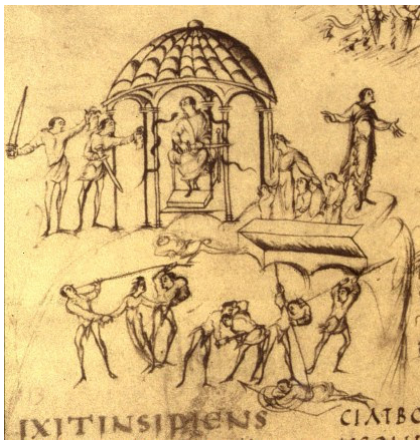 IXITINSIPIENS CIATBO